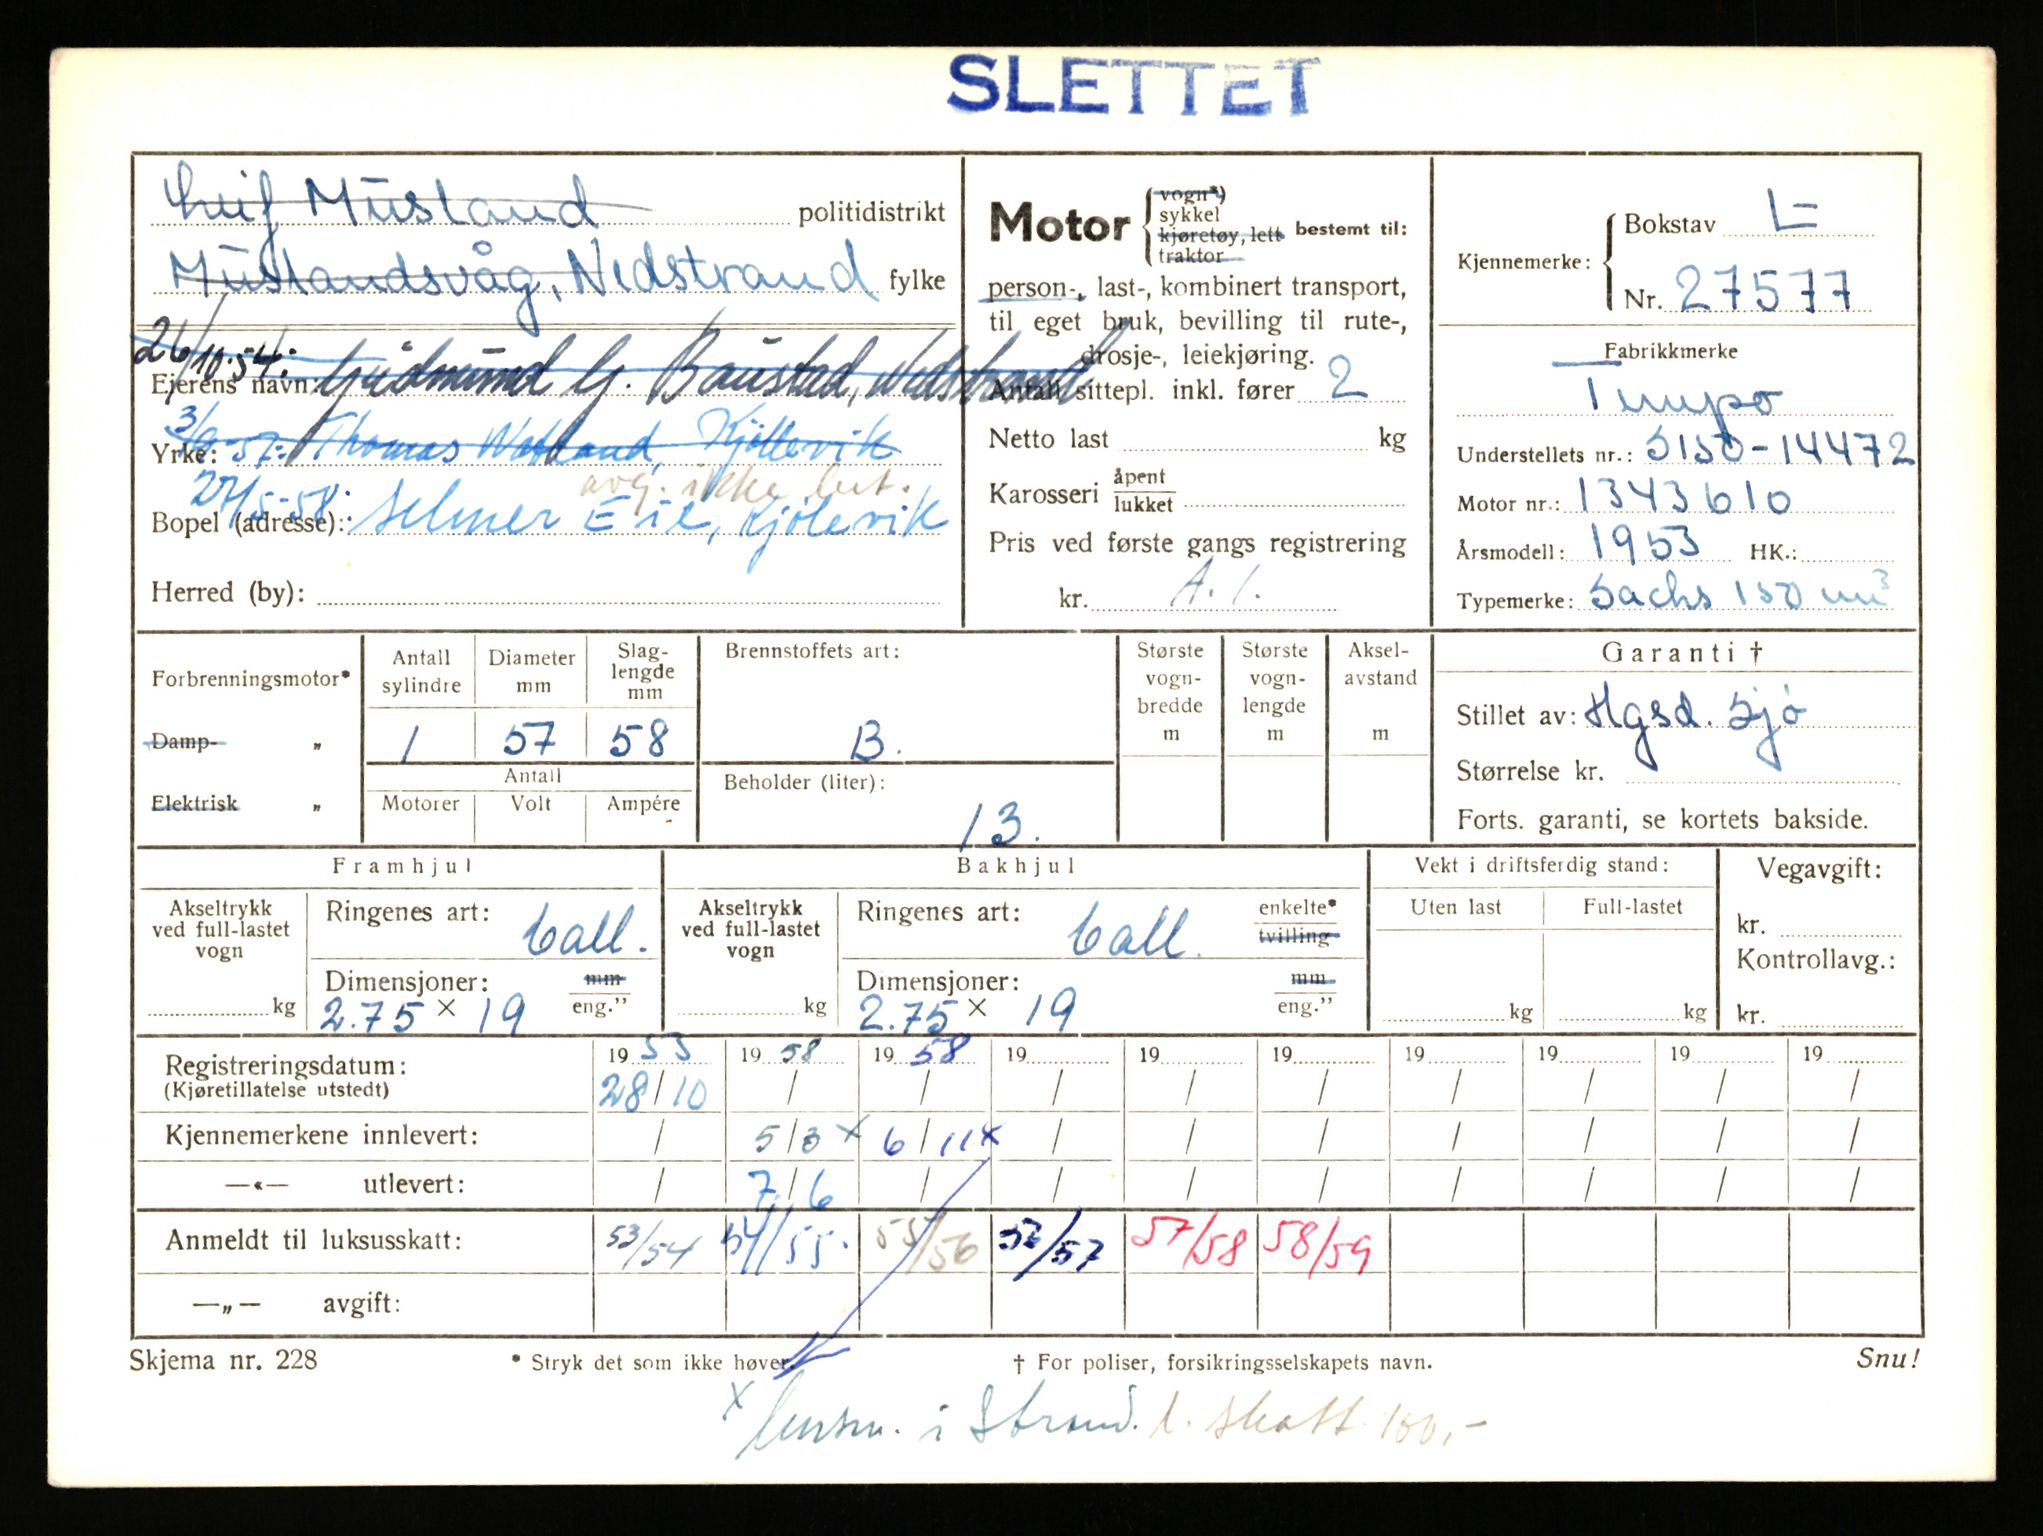 SLETTET
Leif Mustand politidistrikt
Mustandsvåg, Nedstrand fylke
26/10-54: Gudmund G. Baustad, Nedstrand
Eierens navn:
3/6-57: Thomas Kjöllevik
Yrke:
avg. ikke bet.
27/5-58: Selmer Eie, Kjölevik
Bopel (adresse):
Herred (by):
Motor
vogn*)
sykkel
kjøretøy, lett
traktor
bestemt til:
person-, last-, kombinert transport,
til eget bruk, bevilling til rute-,
drosje-, leiekjøring.
Antall sittepl. inkl. fører 2
Netto last kg
Karosseri åpent
lukket
Pris ved første gangs registrering
kr.
Kjennemerke: Bokstav L
Nr. 27577
Fabrikkmerke
Tempo
Understellets nr.: 5150-14472
Motor nr.: 1343610
Årsmodell: 1953 HK.:
Typemerke: Sachs 150 cm³
Forbrenningsmotor*
Damp- „
Elektrisk „
Antall sylindre Diameter mm Slaglengde mm
1 57 58
Antall
Motorer Volt Ampére
Brennstoffets art:
B.
Beholder (liter):
13.
Største vogn-bredde m
Største vogn-lengde m
Aksel-avstand m
Garanti †
Stillet av: Hgsd. Sjø
Størrelse kr.
Forts. garanti, se kortets bakside.
Framhjul
Akseltrykk
ved full-lastet
vogn
kg
Ringenes art: Ball.
Dimensjoner: mm
2.75 × 19 eng.”
Bakhjul
Akseltrykk
ved full-lastet
vogn
kg
Ringenes art: Ball. enkelte*
tvilling
Dimensjoner: mm.
2.75 × 19 eng.”
Vekt i driftsferdig stand:
Uten last Full-lastet
kg kg
Vegavgift:
kr.
Kontrollavg.:
kr.
Registreringsdatum: 1953 1958 1958 19 19 19 19 19 19 19
(Kjøretillatelse utstedt) 28/10 / / / / / / / / /
Kjennemerkene innlevert: / 5/3 x 6/11 x / / / / / / /
—«— utlevert: / 7/6 / / / / / / / /
Anmeldt til luksusskatt: 53/54 54/55. 55/56 57/58 58/59
—„— avgift:
Skjema nr. 228 * Stryk det som ikke høver. † For poliser, forsikringsselskapets navn. Snu!
x i Strand. l. skatt 100,-